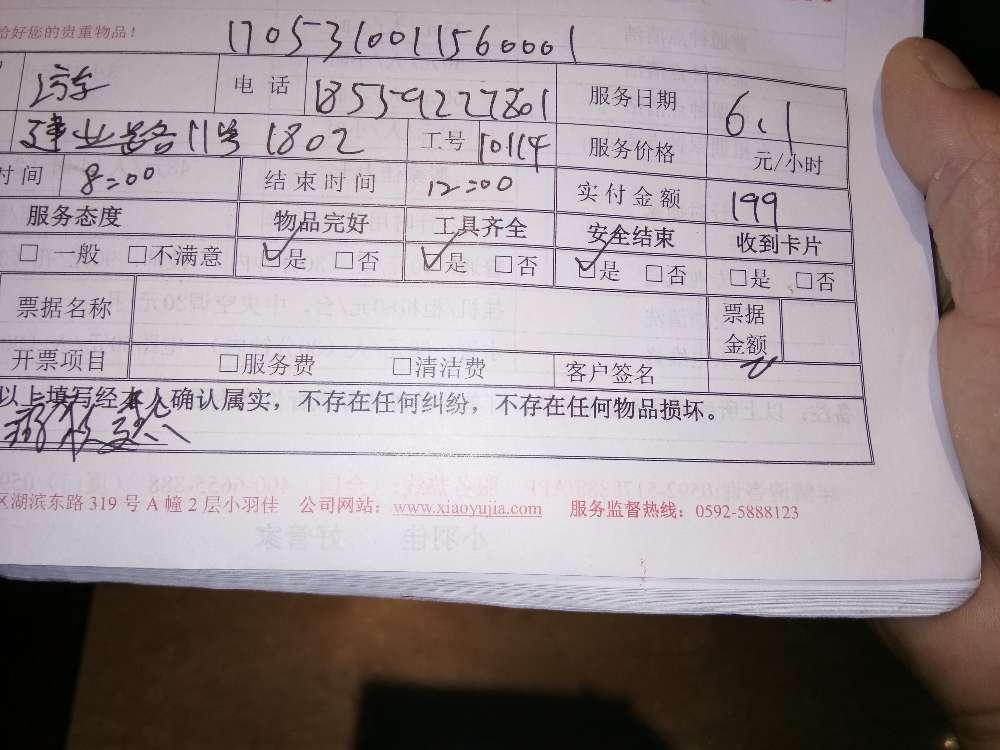 给好您的贵重物品!
17053100115600001
电 话 18559227801 服务日期 6.1
建业路11号1802 工号 10114 服务价格 元/小时
时间 8:00 结束时间 12:00 实付金额 199
服务态度 物品完好 工具齐全 安全结束 收到卡片
□一般 □不满意 ☑是 □否 ☑是 □否 ☑是 □否 □是 □否
票据名称 票据金额
开票项目 □服务费 □清洁费 客户签名
以上填写经本人确认属实,不存在任何纠纷,不存在任何物品损坏。
区湖滨东路 319 号 A 幢 2 层小羽佳 公司网站:www.xiaoyujia.com 服务监督热线:0592-5888123